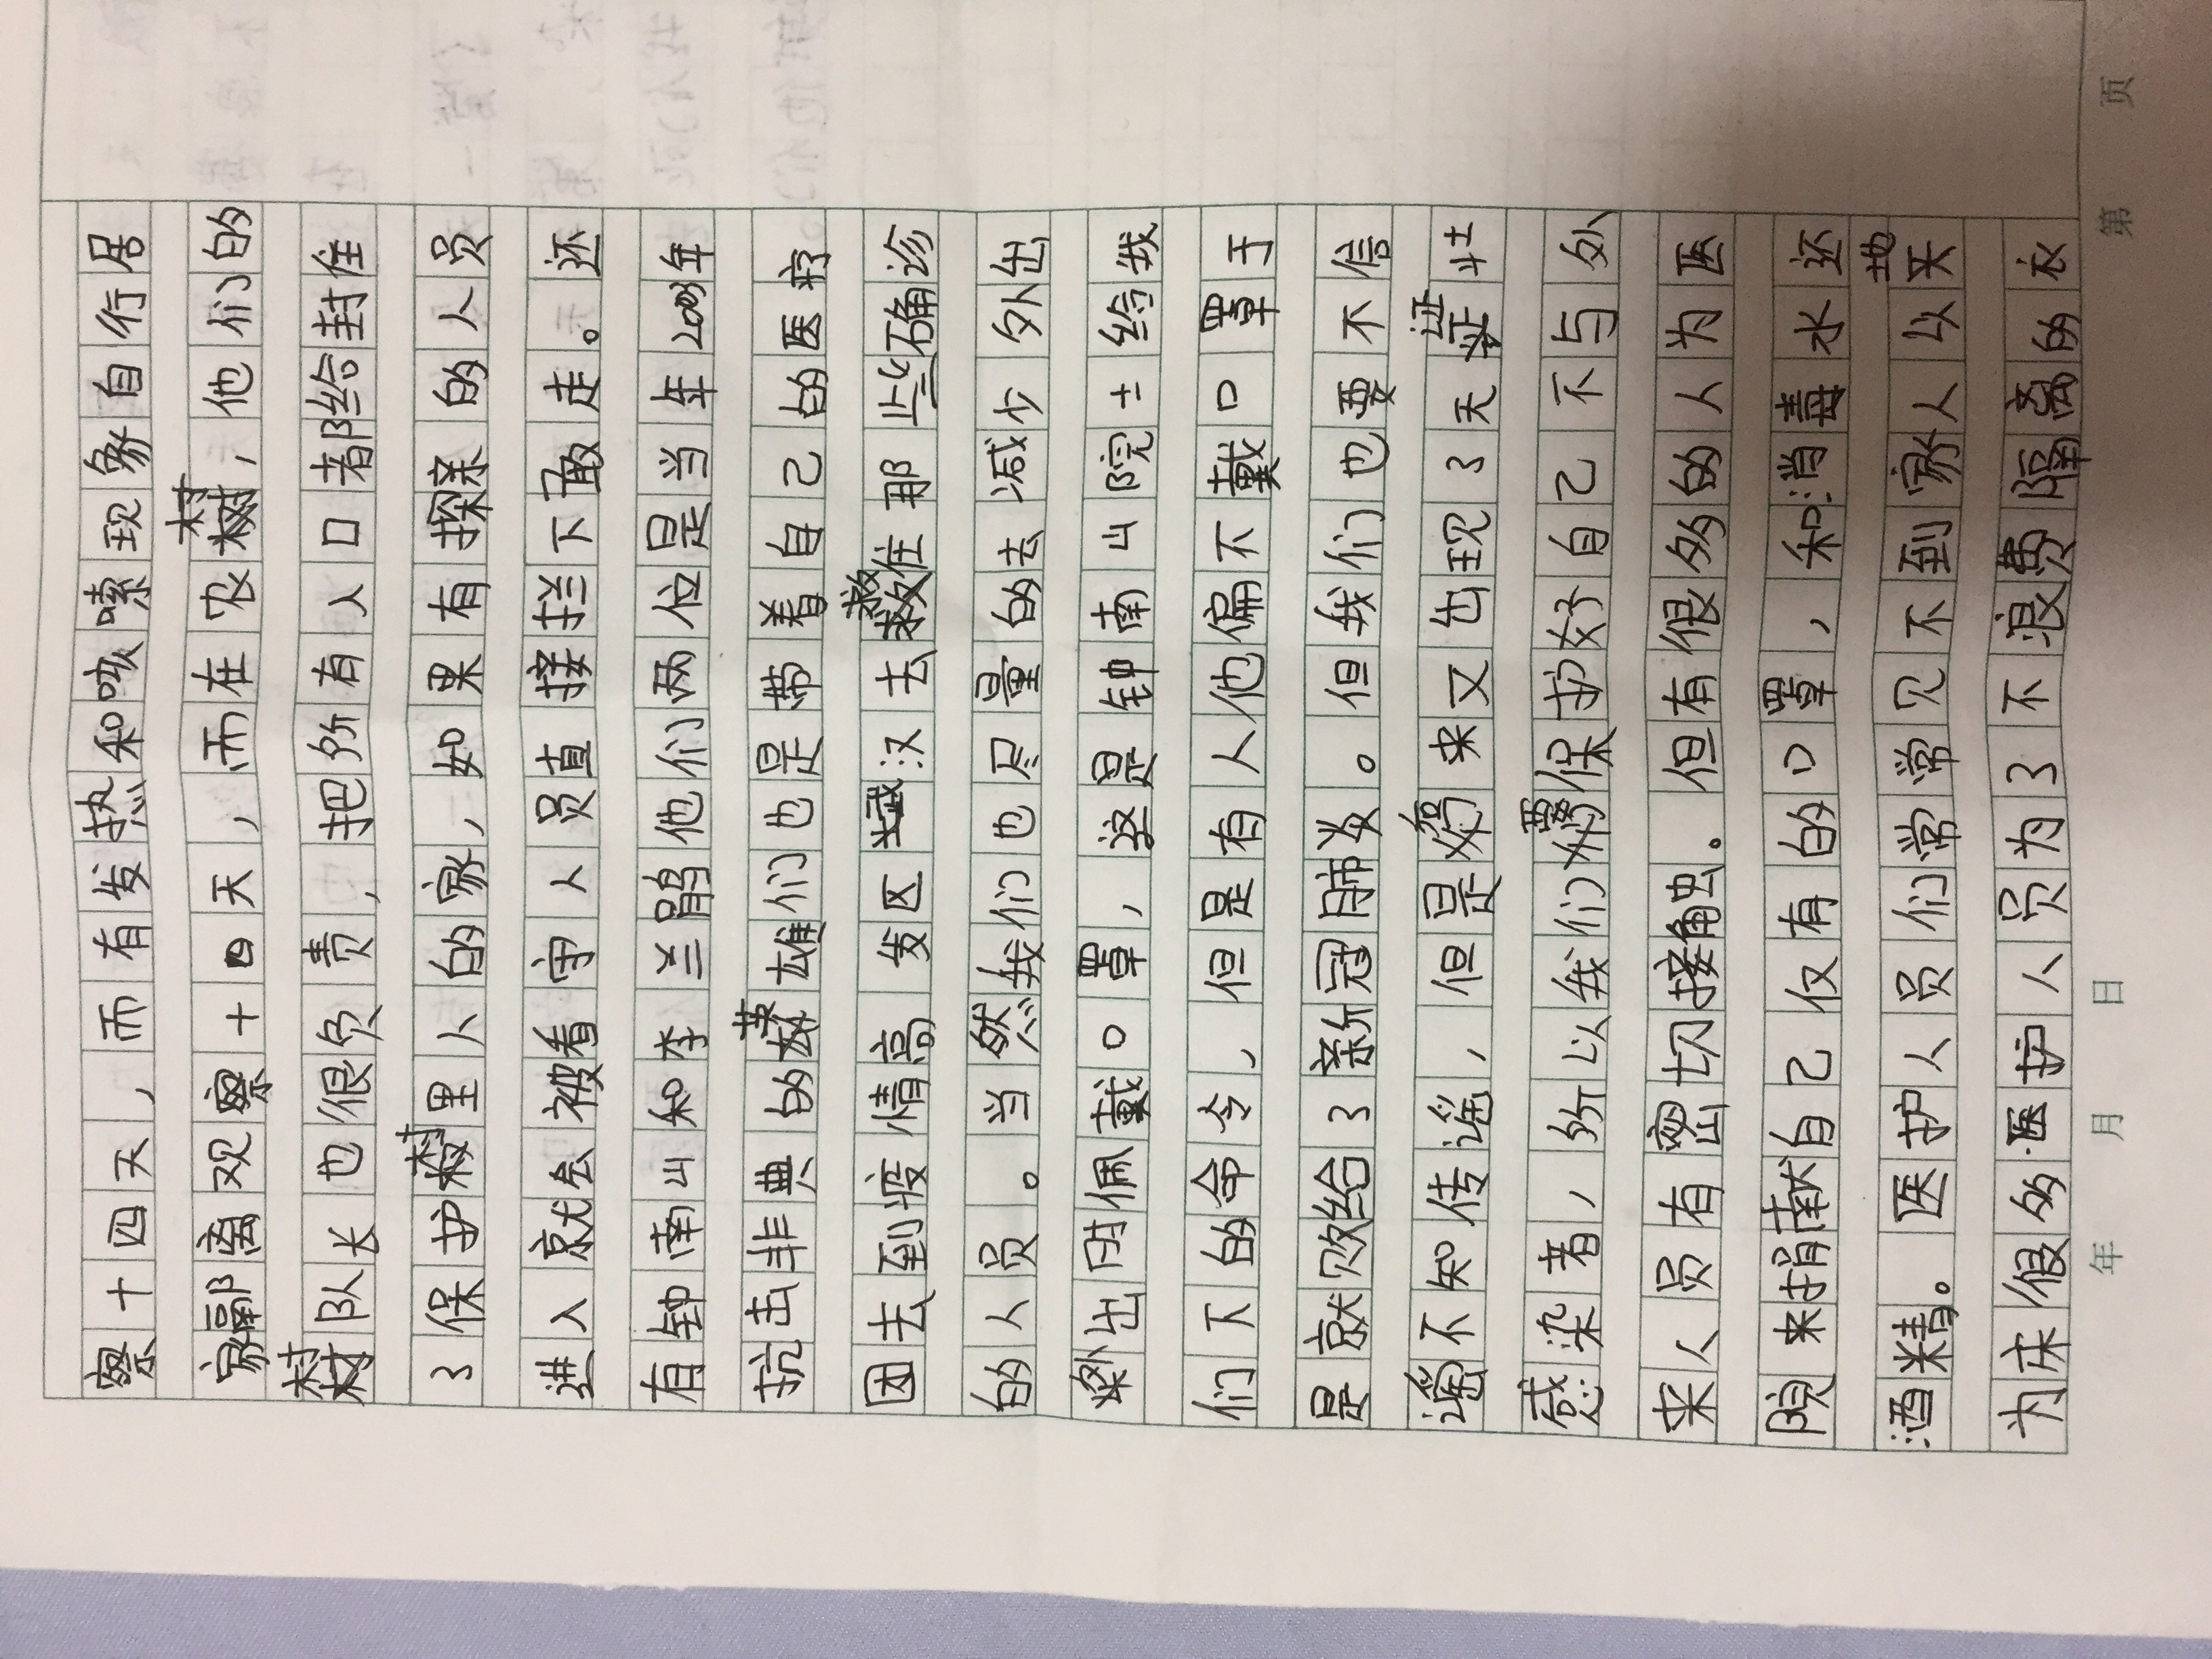 察十四天，而有发热和咳嗽现象自行居
家隔离观察十四天，而在农村，他们的
村队长也很负责，把所有入口都给封住
了保护村里人的家，如果有探亲的人员
进入就会被看守人员直接拦下敢走。还
有钟南山和李兰鹃他们两位是当年2003年
抗击非典的英雄们也是带着自己的医疗
团去到疫情高发区武汉去救住那些确诊
的人员。当然我们也尽量的去减少外出
出门佩戴口罩，这是钟南山院士给我
们下的命令，但是有人他偏不戴口罩于
是就败给了新冠肺炎。但我们也要不信
谣不知传谣，但是来又出现了天证壮
感染者，所以我们要保护好自己不与外
来人员有密切接触。但有很多的人为医
院来捐献自己仅有的口罩，和消毒水还
酒精。医护人员们常常见不到家人以地
为床很多医护人员为了不浪费隔离的衣
年 月 日 第 页